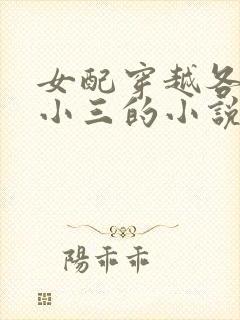 女配穿越各
小三的小說
陽乖乖